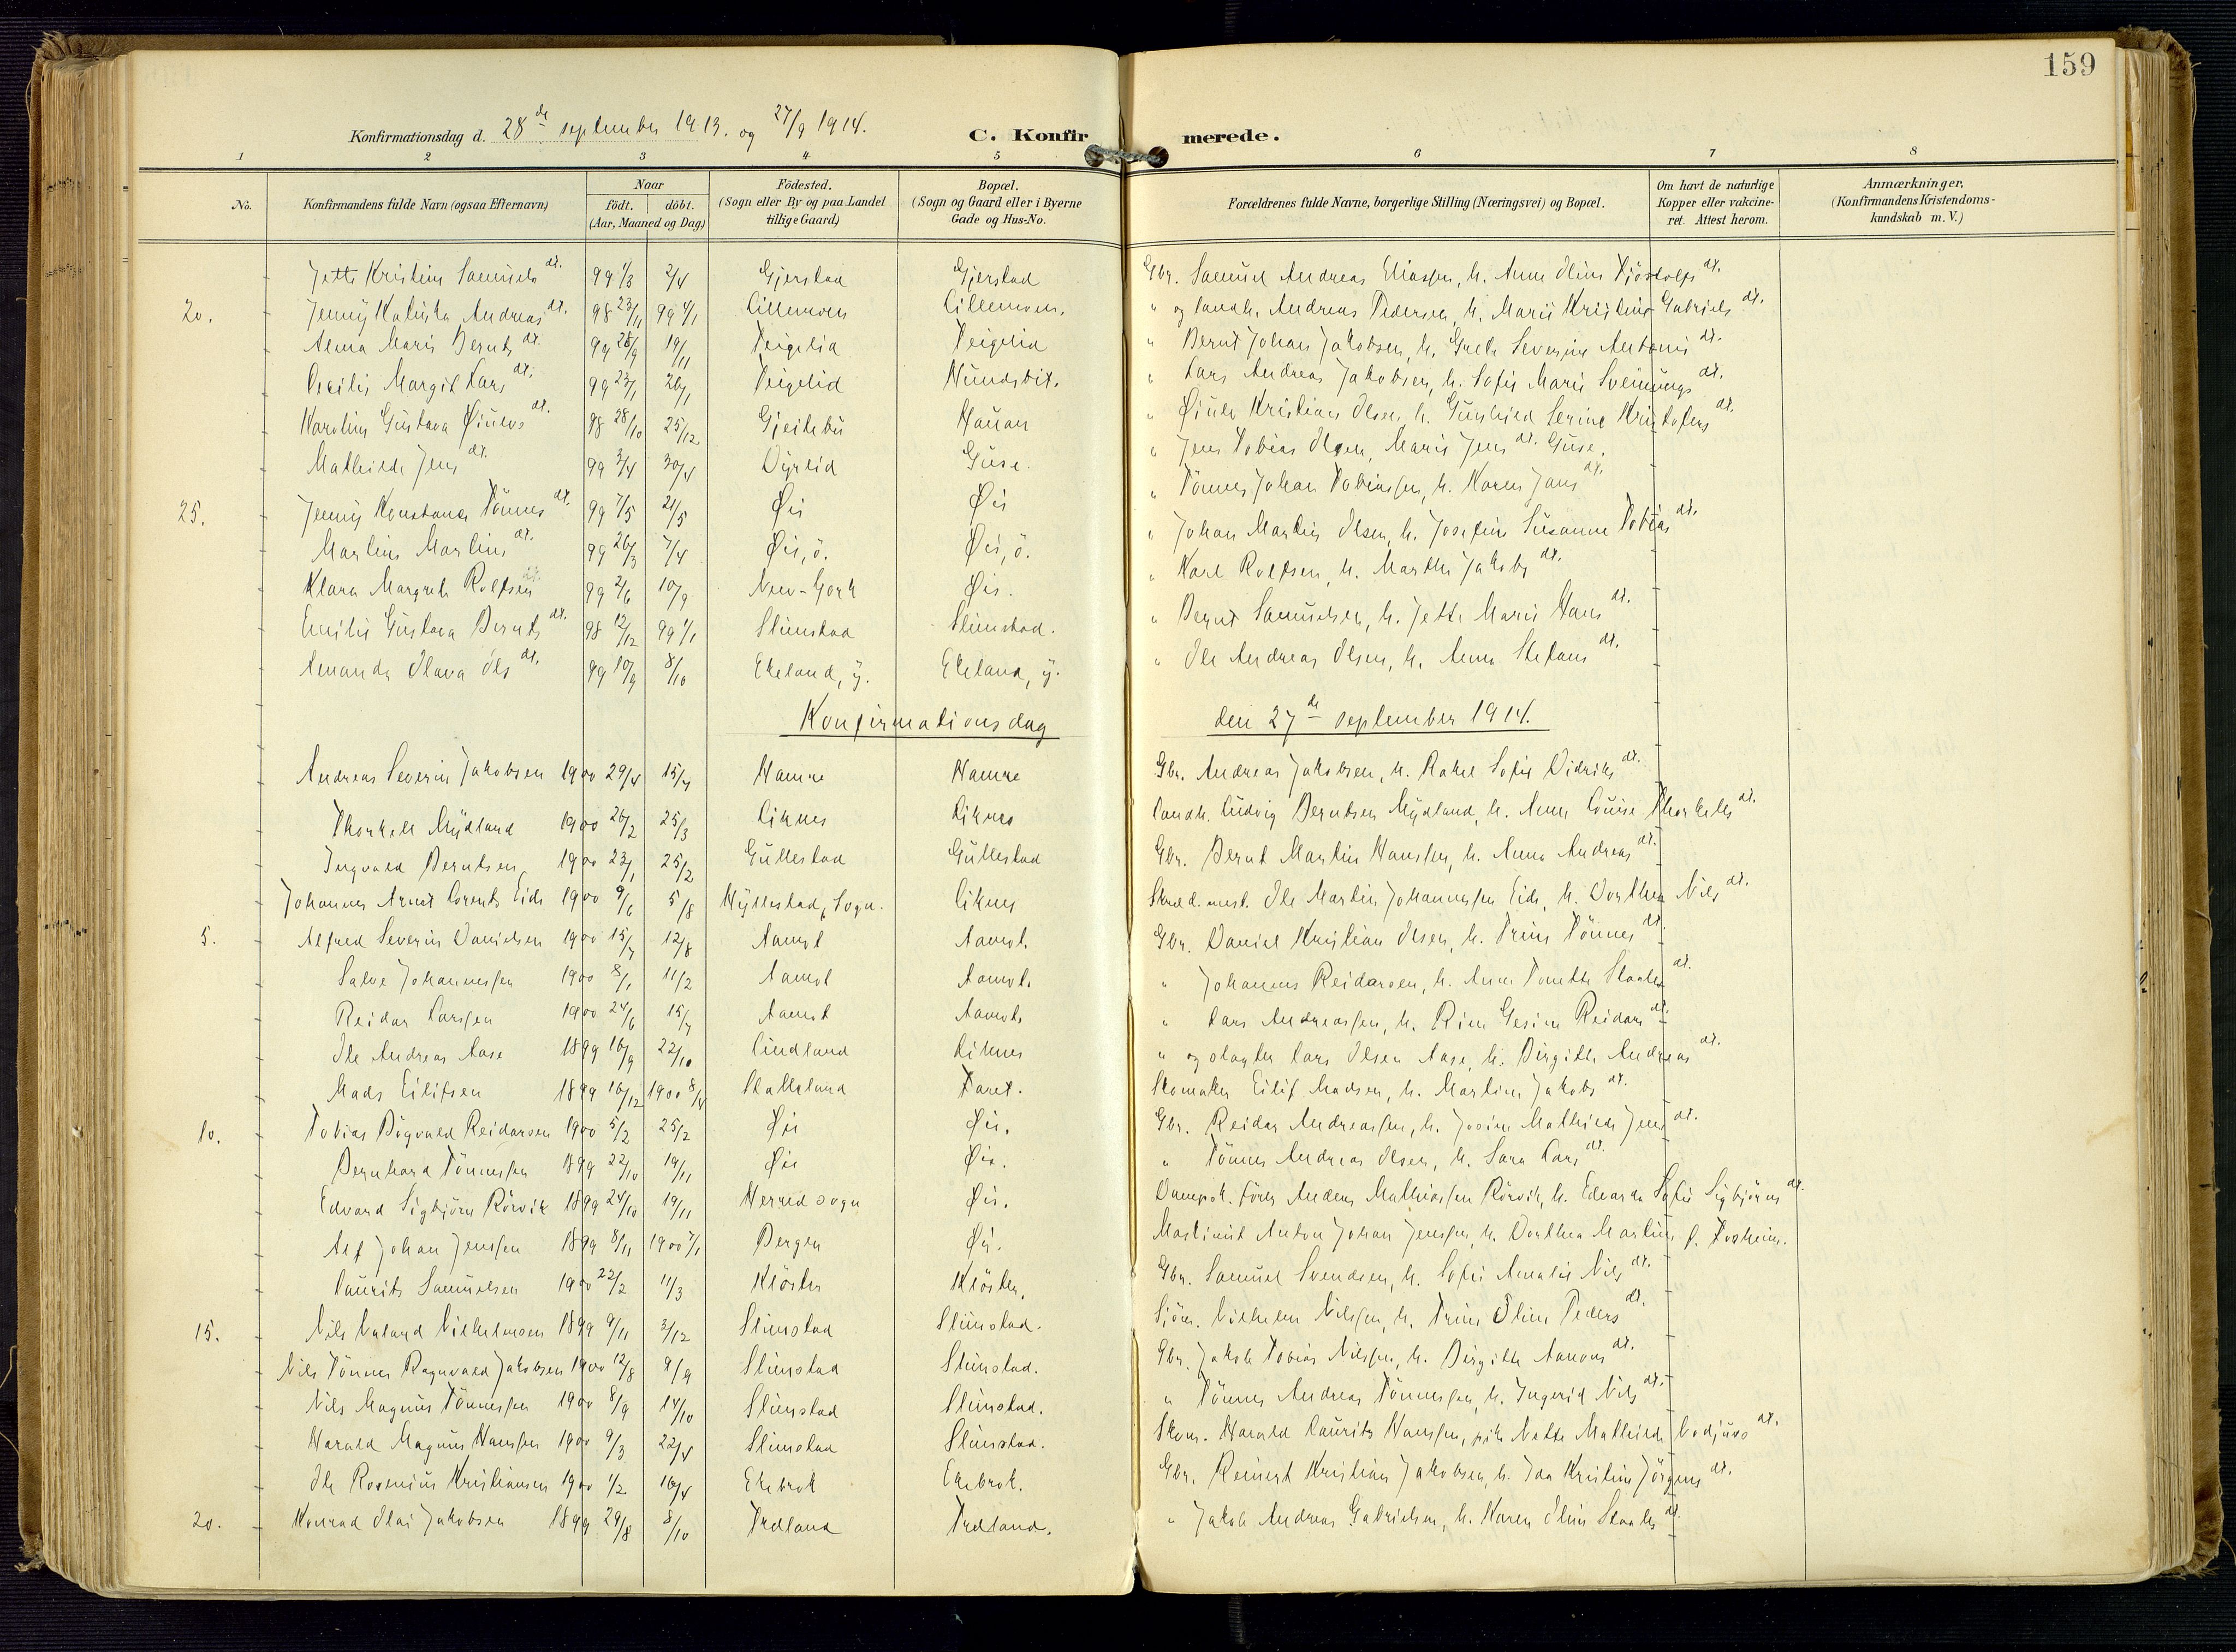 159
Konfirmationsdag d. 28de september 1913. og 27/9 1914. C. Konfirmerede.
1 2 3 4 5 6 7 8
No. Konfirmandens fulde Navn (ogsaa Efternavn) Naar födt. döbt. (Aar, Maaned og Dag) Födested. (Sogn eller By og paa Landet tillige Gaard) Bopæl. (Sogn og Gaard eller i Byerne Gade og Hus-No. Forældrenes fulde Navne, borgerlige Stilling (Næringsvei) og Bopæl. Om havt de naturlige Kopper eller vakcineret. Attest herom. Anmærkninger, (Konfirmandens Kristendomskundskab m. V.)
Jette Kristine Samuels dt. 99 1/3 2/4 Gjerstad Gjerstad Gbr. Samuel Andreas Eliassen, h. Anne Oline Tjöstolfs dt.
20. Jenny Andreas dt. 98 23/11 99 4/1 Lillemoen Lillemoen. " og landh. Andreas Pedersen, h. Marie Kristine Gabriels dt.
Alma Marie Bernts dt. 99 28/9 19/11 Veigelid Veigelid " Bernt Johan Jakobsen, h. Grete Severine Antonis dt.
Cecilie Margit Lars dt. 99 23/1 26/1 Veigelid " Lars Andreas Jakobsen, h. Sofie Marie Sveinungs dt.
Karoline Gustava Öiulvs dt. 98 28/10 25/12 Gjeitebu Hauan " Öiulv Kristian Olsen, h. Gunhild Serine Kristofers dt.
Mathilde Jens dt. 99 3/4 30/4 Dyrlid Guse. " Jens Tobias Olsen, Marie Jens dt. Guse.
25. Jenny Konstance Tönnes dt. 99 7/5 21/5 Öie Öie " Tönnes Johan Tobiassen, h. Karen Jans dt.
Martine Martins dt. 99 26/3 7/4 Öie, ö. Öie, ö. " Johan Martin Olsen, h. Josefine Susanne Tobias dt.
Klara Margrete Rolfsen 99 2/6 10/9 New-York Öie. " Karl Rolfsen, h. Marthe Jakobs dt.
Emilie Gustava Bernts dt. 98 12/12 99 1/1 Slimstad Slimstad. " Bernt Samuelsen, h. Jette Marie Hans dt.
Amanda Olava Ols dt. 99 10/9 8/10 Ekeland, y. Ekeland, y. " Ole Andreas Olsen, h. Anna Stefans dt.
Konfirmationsdag den 27de september 1914.
Andreas Severin Jakobsen 1900 29/4 15/7 Hamre Hamre Gbr. Andreas Jakobsen, h. Rakel Sofie Didriks dt.
Thorkell Mydland 1900 26/2 25/3 Liknes Liknes Landh. Ludvig Berntsen Mydland, h. Anne Louise Thorkels dt.
Ingvald Berntsen 1900 23/1 25/2 Gullestad Gullestad Gbr. Bernt Martin Hanssen, h. Anna Andreas dt.
Johannes Arnt Lorents Eide 1900 9/6 5/8 Hyllestad, Sogn. Liknes Ole Martin Johannessen Eide, h. Dorthea Nils dt.
5. Alfred Severin Danielsen 1900 15/7 12/8 Aamot Aamot. Gbr. Daniel Kristian Olsen, h. Trine Tönnes dt.
Salve Johannessen 1900 8/1 11/2 Aamot Aamot. " Johannes Reidarsen, h. Anne Tonette dt.
Reidar Larssen 1900 24/6 15/7 Aamot Aamot. " Lars Andreassen, h. Rine Gesine Reidars dt.
Ole Andreas Aase 1899 16/9 22/10 Lindland Liknes " og slagter Lars Olsen Aase, h. Birgitte Andreas dt.
Mads Eilifsen 1899 16/12 1900 8/4 Slatteland Skomaker Eilif Madsen, h. Martine Jakobs dt.
10. Tobias Reidarsen 1900 5/2 25/2 Öie Öie. Gbr. Reidar Andreassen, h. Josine Mathilde Jens dt.
Bernhard Tönnessen 1899 22/10 19/11 Öie Öie. " Tönnes Andreas Olsen, h. Sara Lars dt.
Edvard Sigbjörn Rörvik 1899 24/10 19/11 Herred sogn Öie. Dampsk. förer Anders Mathiassen Rörvik, h. Edvarda Sofie Sigbjörns dt.
Alf Johan Jenssen 1899 8/11 1900 7/1 Bergen Öie. Anton Johan Jenssen, h. Dorthea Martine f.
Laurits Samuelsen 1900 22/2 11/3 Klöster Klöster. Gbr. Samuel Svendsen, h. Sofie Amalie Nils dt.
15. Nils Vilhelmsen 1899 9/11 3/12 Slimstad Slimstad. Sjöm. Vilhelm Nilssen, h. Trine Oline Peders dt.
Nils Tönnes Ragnvald Jakobsen 1900 12/8 9/9 Slimstad Slimstad. Gbr. Jakob Tobias Nilssen, h. Birgitte Aanons dt.
Nils Magnus Tönnessen 1900 8/9 14/10 Slimstad Slimstad. " Tönnes Andreas Tönnessen, h. Ingerid Nils dt.
Harald Magnus Hanssen 1900 9/3 22/4 Slimstad Slimstad. Skom. Harald Laurits Hanssen, pike Nette Mathilde dt.
Ole Rosenius Kristiansen 1900 1/2 16/4 Ekebrok Ekebrok. Gbr. Reinert Kristian Jakobsen, h. Ida Kristine Jörgens dt.
20. Konrad Olai Jakobsen 1899 29/8 8/10 Tredland Tredland. " Jakob Andreas Gabrielsen, h. Karen Oline dt.